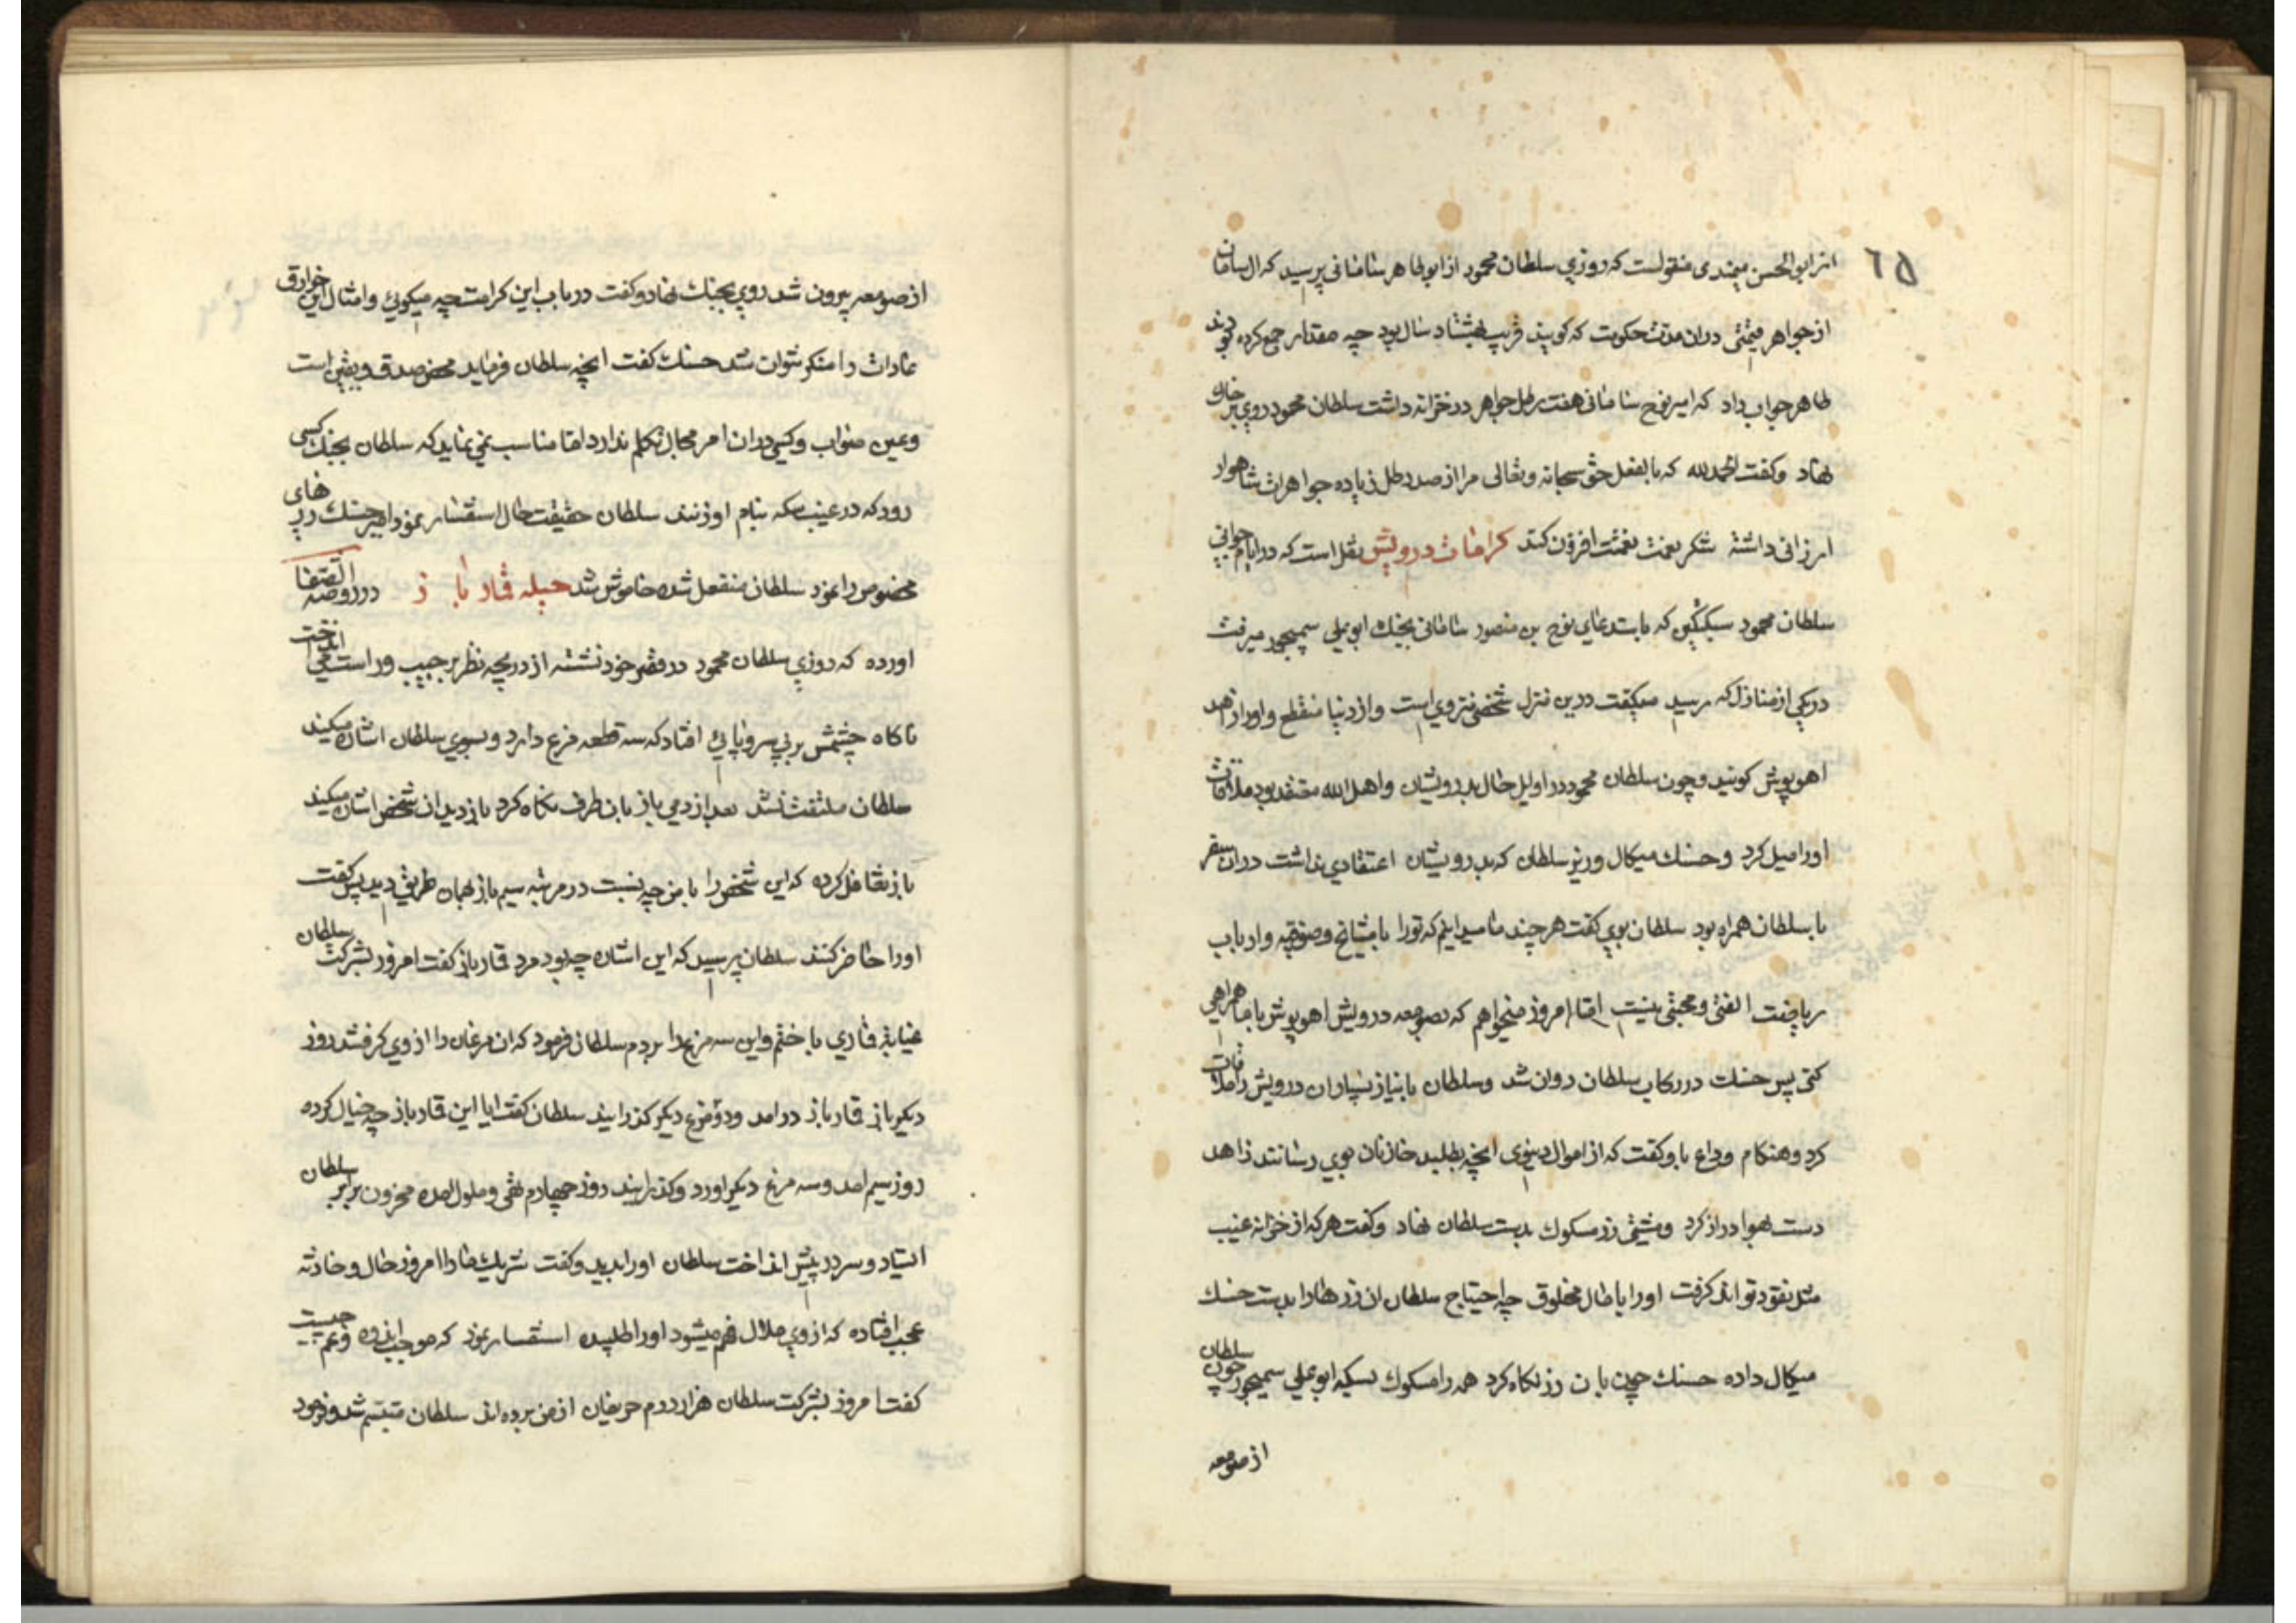 ٦٥
از ابوالحسن میمندی منقولست که روزی سلطان محمود از ابوطاهر سامانی پرسید که ال سامان
از جواهر قیمتی دران مدت حکومت که کویند قریب هشتاد سال بود چه مقدار جمع کرده بودند
طاهر جواب داد که امیر نوح سامانی هفت رطل جواهر در خزانه داشت سلطان محمود روی بر خاك
نهاد وکفت الحمدلله که بالفعل حق سبحانه وتعالی مرا از صد رطل زیاده جواهرات شاهوار
ارزانی داشته شکر نعمت نعمتت افزون کند کرامات درویش نقل است که در ایام جوانی
سلطان محمود سبکتکین که باستدعای نوح بن منصور سامانی بجنك ابوعلی سیمجور میرفت
در یکی از منازل که رسید میکفت درین منزل شخصی منزوی است واز دنیا منقطع واورا زاهد
اهوپوش کویند وچون سلطان محمود در اوایل حال بدرویشان واهل الله معتقد بود ملاقات
اورا میل کرد وحسنك میکال وزیر سلطان که بدرویشان اعتقادی نداشت دران سفر
با سلطان همراه بود سلطان بوی کفت هر چند ما میدانیم که تورا با مشایخ وصوفیه وارباب
ریاضت الفتی ومحبتی نیست اما امروز میخواهم که بصومعه درویش اهوپوش با ما همراهی
کنی پس حسنك در رکاب سلطان روان شد وسلطان با نیاز بسیار ان درویش را ملاقات
کرد وهنکام وداع باو کفت که از اموال دنیوی انچه بطلبید خازنان بوی رسانند زاهد
دست بهوا دراز کرد ومشتی زر مسکوك بدست سلطان نهاد وکفت هرکه از خزانه غیب
مثل نقود تواند کرفت اورا با مال مخلوق چه احتیاج سلطان ان زرهارا بدست حسنك
میکال داده حسنك چون بان زر نکاه کرد همه را مسکوك بسکه ابوعلی سیمجور چون سلطان
از صومعه
از صومعه بیرون شد روی بحسنك نهاد وکفت در باب این کرامت چه میکوئی وامثال این خوارق
عادات را منکر نتوان شد حسنك کفت انچه سلطان فرماید محض صدق ویقین است
وعین صواب وکسی دران امر مجال تکلم ندارد اما مناسب نمی نماید که سلطان بجنك کسی
رود که در غیب سکه بنام او زنند سلطان حقیقت حال استفسار نمود امیر حسنك زر های
مخصوص را نمود سلطان منفعل شده خاموش شد حیله قمار باز در روضه الصفا
اورده که روزی سلطان محمود در قصر خود نشسته از دریچه نظر بر چپ وراست می انداخت
ناکاه چشمش بر بی سروپائی افتاد که سه قطعه مرغ دارد وبسوی سلطان اشاره میکند
سلطان ملتفت نشد بعد از دمی باز بان طرف نکاه کرد باز دید ان شخص اشاره میکند
باز تغافل کرده که این شخص را با من چه نسبت در مرتبه سیم باز بهمان طریق دید پس کفت
اورا حاضر کنند سلطان پرسید که این اشاره چه بود مرد قمار باز کفت امروز بشرکت سلطان
غایبانه قماری باختم واین سه مرغ را بردم سلطان فرمود که ان مرغان را از وی کرفتند روز
دیکر باز قمار باز درامد ودو مرغ دیکر کذرانید سلطان کفت ایا این قمار باز چه خیال کرده
روز سیم امد وسه مرغ دیکر اورد وکذرانید روز چهارم تهی وملول امده محزون برابر سلطان
استاد وسر در پیش انداخت سلطان اورا بدید وکفت شریك مارا امروز حال وحادثه
عجب افتاده که از وی ملال فهم میشود اورا طلبیده استفسار نمود که موجب اندوه وغم چیست
کفت امروز بشرکت سلطان هزار درم حریفان از من برده اند سلطان متبسم شد وفرمود